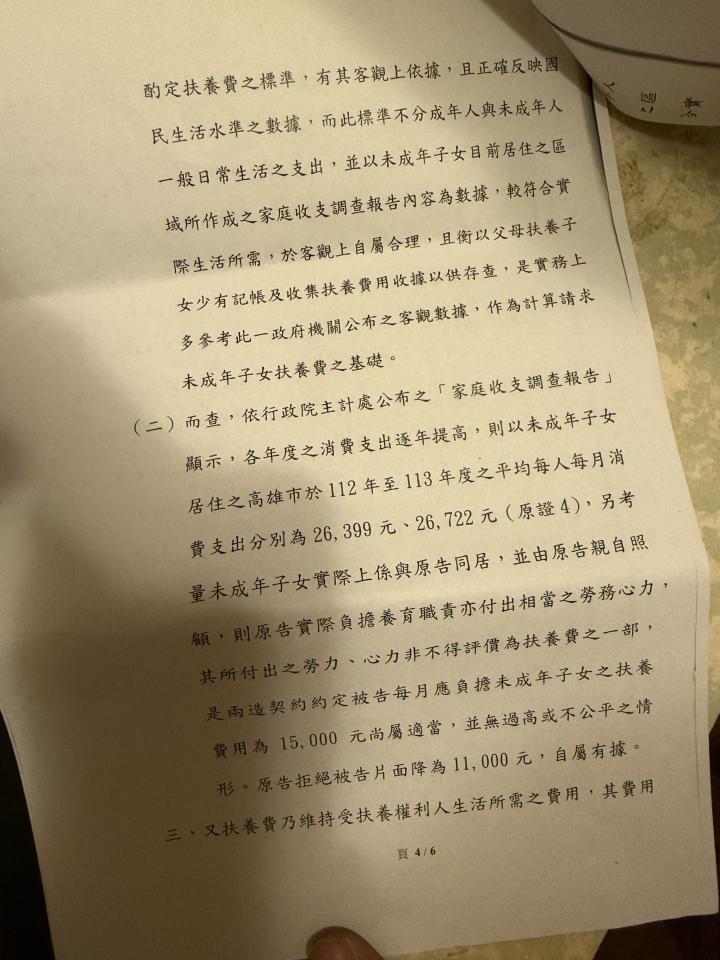 酌定扶養費之標準，有其客觀上依據，且正確反映國
民生活水準之數據，而此標準不分成年人與未成年人
一般日常生活之支出，並以未成年子女目前居住之區
域所作成之家庭收支調查報告內容為數據，較符合實
際生活所需，於客觀上自屬合理，且衡以父母扶養子
女少有記帳及收集扶養費用收據以供存查，是實務上
多參考此一政府機關公布之客觀數據，作為計算請求
未成年子女扶養費之基礎。
（二）而查，依行政院主計處公布之「家庭收支調查報告」
顯示，各年度之消費支出逐年提高，則以未成年子女
居住之高雄市於112年至113年度之平均每人每月消
費支出分別為26,399元、26,722元（原證4），另考
量未成年子女實際上係與原告同居，並由原告親自照
顧，則原告實際負擔養育職責亦付出相當之勞務心力，
其所付出之勞力、心力非不得評價為扶養費之一部，
是兩造契約約定被告每月應負擔未成年子女之扶養
費用為 15,000 元尚屬適當，並無過高或不公平之情
形。原告拒絕被告片面降為11,000元，自屬有據。
三、又扶養費乃維持受扶養權利人生活所需之費用，其費用
頁 4 / 6